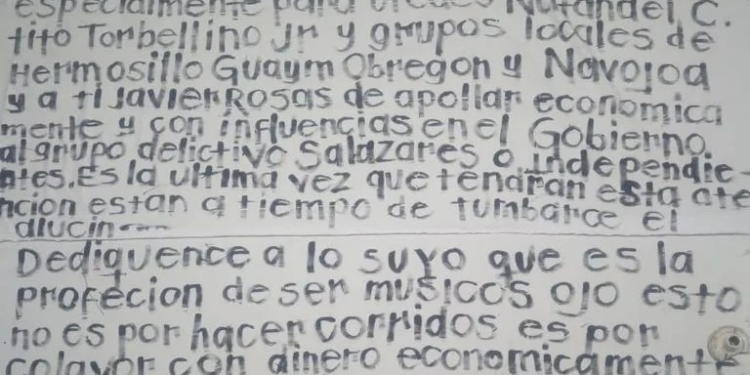 especialmente para
tito Torbellino Jr y grupos locales de
Hermosillo Guaym Obregon y Navojoa
y a ti Javier Rosas de apollar economica
mente y con influencias en el Gobierno.
al grupo delictivo Salazares o Independie-
ntes. Es la ultima vez que tendran esta ate
ncion estan a tiempo de tumbarce el
alucin
Dediquence a lo suyo que es la
profecion de ser musicos ojo esto
no es por hacer corridos es por
colavor con dinero economicamente